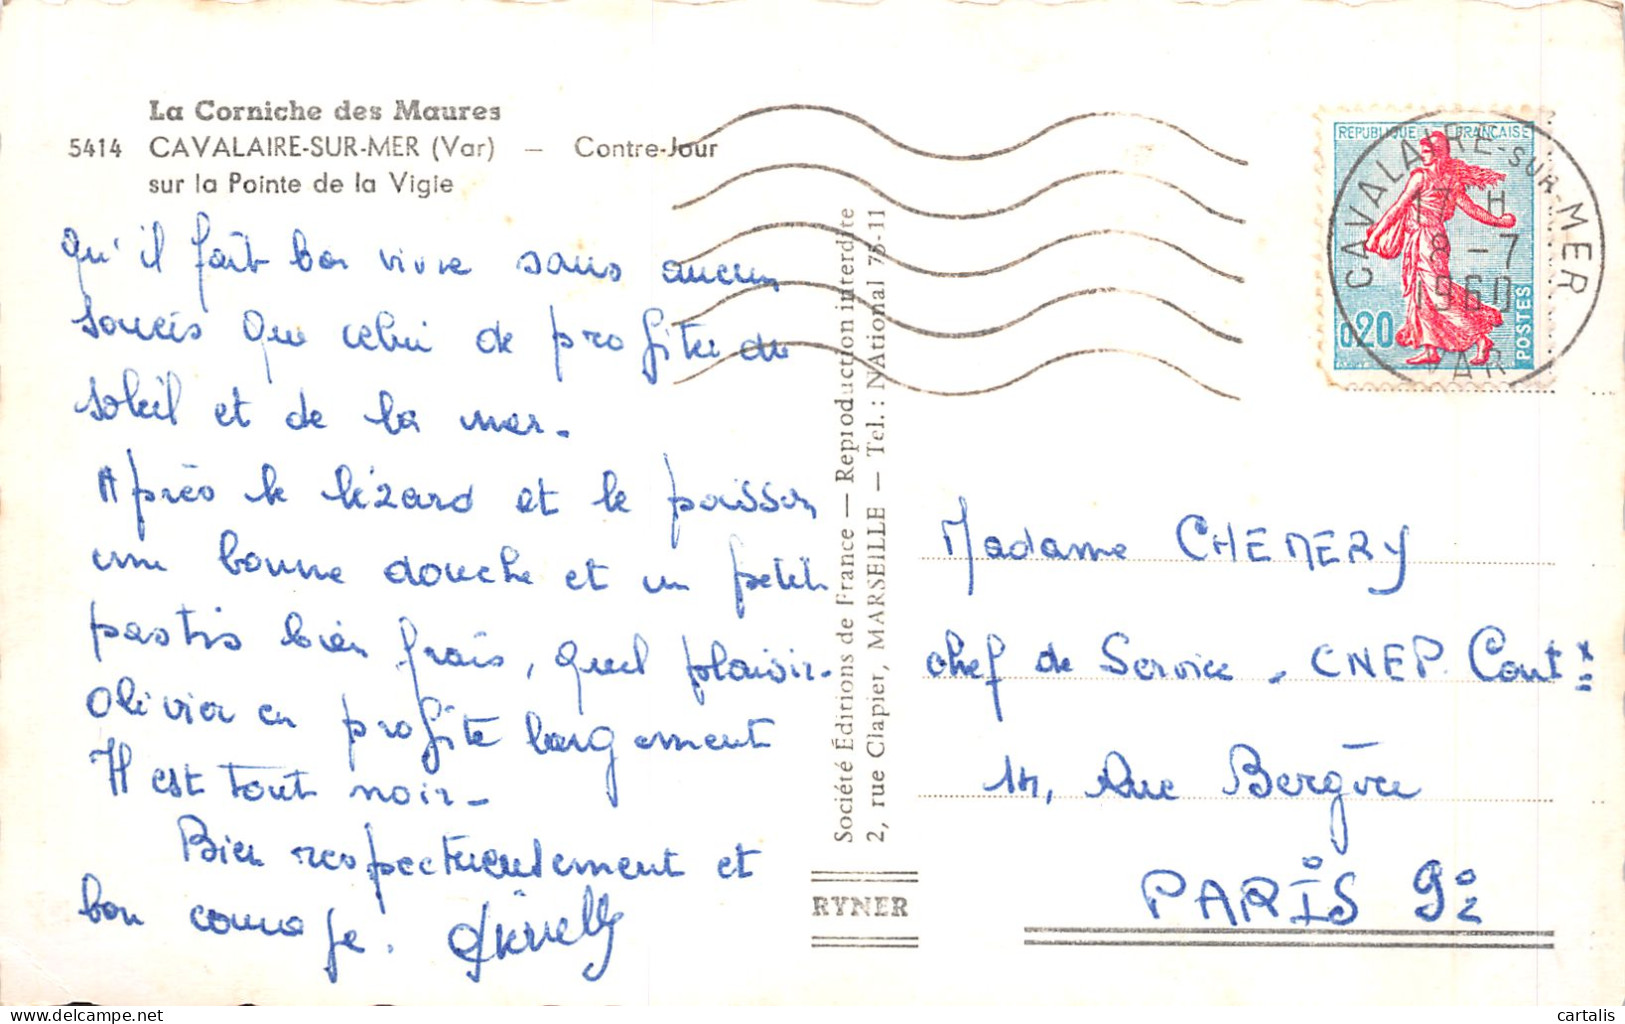 La Corniche des Maures
5414 CAVALAIRE-SUR-MER (Var) — Contre-Jour
sur la Pointe de la Vigie
Qu'il fait bon vivre sans aucun
soucis que celui de profiter du
soleil et de la mer.
Après le lézard et le poisson
une bonne douche et un petit
pastis bien frais, quel plaisir.
Olivier en profite largement
Il est tout noir.
Bien respectueusement et
bon courage.
Société Éditions de France — Reproduction interdite
2, rue Clapier, MARSEILLE — Tel.: NAtional 75-11
RYNER
REPUBLIQUE FRANCAISE
0,20
POSTES
CAVALAIRE-SUR-MER
17 H
8 - 7
1960
VAR
Madame CHEMERY
chef de Service - CNEP. Cont<sup>x</sup>
14, Rue Bergère
PARIS 9°
cartalis